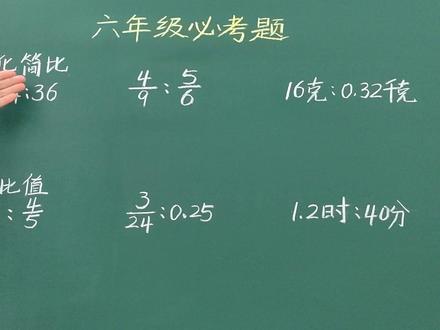 六年级必考题
化简比
:36 4/9 : 5/6 16克:0.32千克
比值
: 4/5 3/24 : 0.25 1.2时:40分